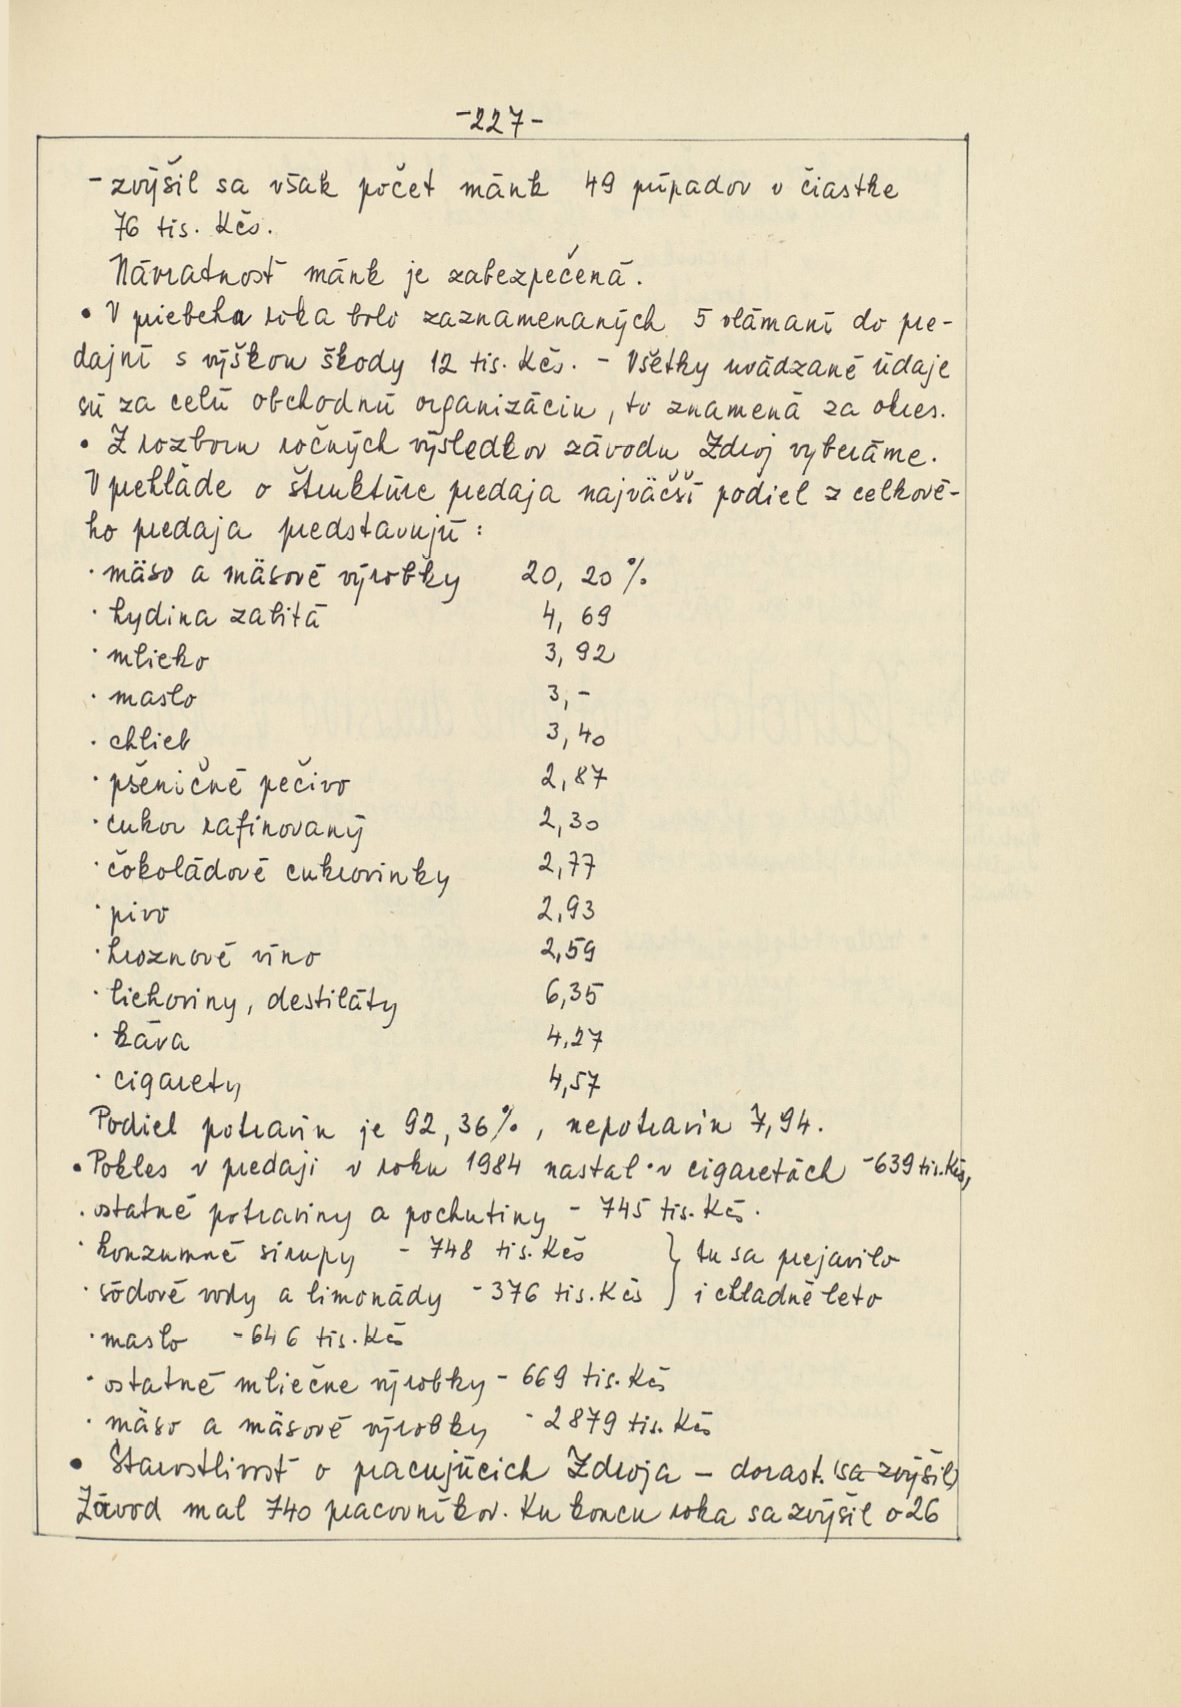 -227-
- zvýšil sa však počet mánk 49 prípadov v čiastke
76 tis. Kčs.
Návratnosť mánk je zabezpečená.
• V priebehu roka bolo zaznamenaných 5 vlámaní do pre-
dajní s výškou škody 12 tis. Kčs. - Všetky uvádzané údaje
sú za celú obchodnú organizáciu, to znamená za okres.
• Z rozboru ročných výsledkov závodu Zdroj vyberáme.
V prehľade o štruktúre predaja najväčší podiel z celkové-
ho predaja predstavujú :
· mäso a mäsové výrobky 20, 20 %
· hydina zabitá 4, 69
· mlieko 3, 92
· maslo 3, -
· chlieb 3, 40
· pšeničné pečivo 2, 87
· cukor rafinovaný 2, 30
· čokoládové cukrovinky 2,77
· pivo 2,93
· hroznové víno 2,59
· liehoviny, destiláty 6,35
· káva 4,27
· cigarety 4,57
Podiel potravín je 92,36%, nepotravín 7,94.
• Pokles v predaji v roku 1984 nastal · v cigaretách -639 tis. Kčs,
· ostatné potraviny a pochutiny - 745 tis. Kčs.
· konzumné sirupy - 748 tis. Kčs } tu sa prejavilo
· sódové vody a limonády - 376 tis. Kčs } i chladné leto
· maslo - 646 tis. Kčs
· ostatné mliečne výrobky - 669 tis. Kčs
· mäso a mäsové výrobky - 2879 tis. Kčs
• Starostlivosť o pracujúcich Zdroja - dorast. (sa zvýšil)
Závod mal 740 pracovníkov. Ku koncu roka sa zvýšil o 26